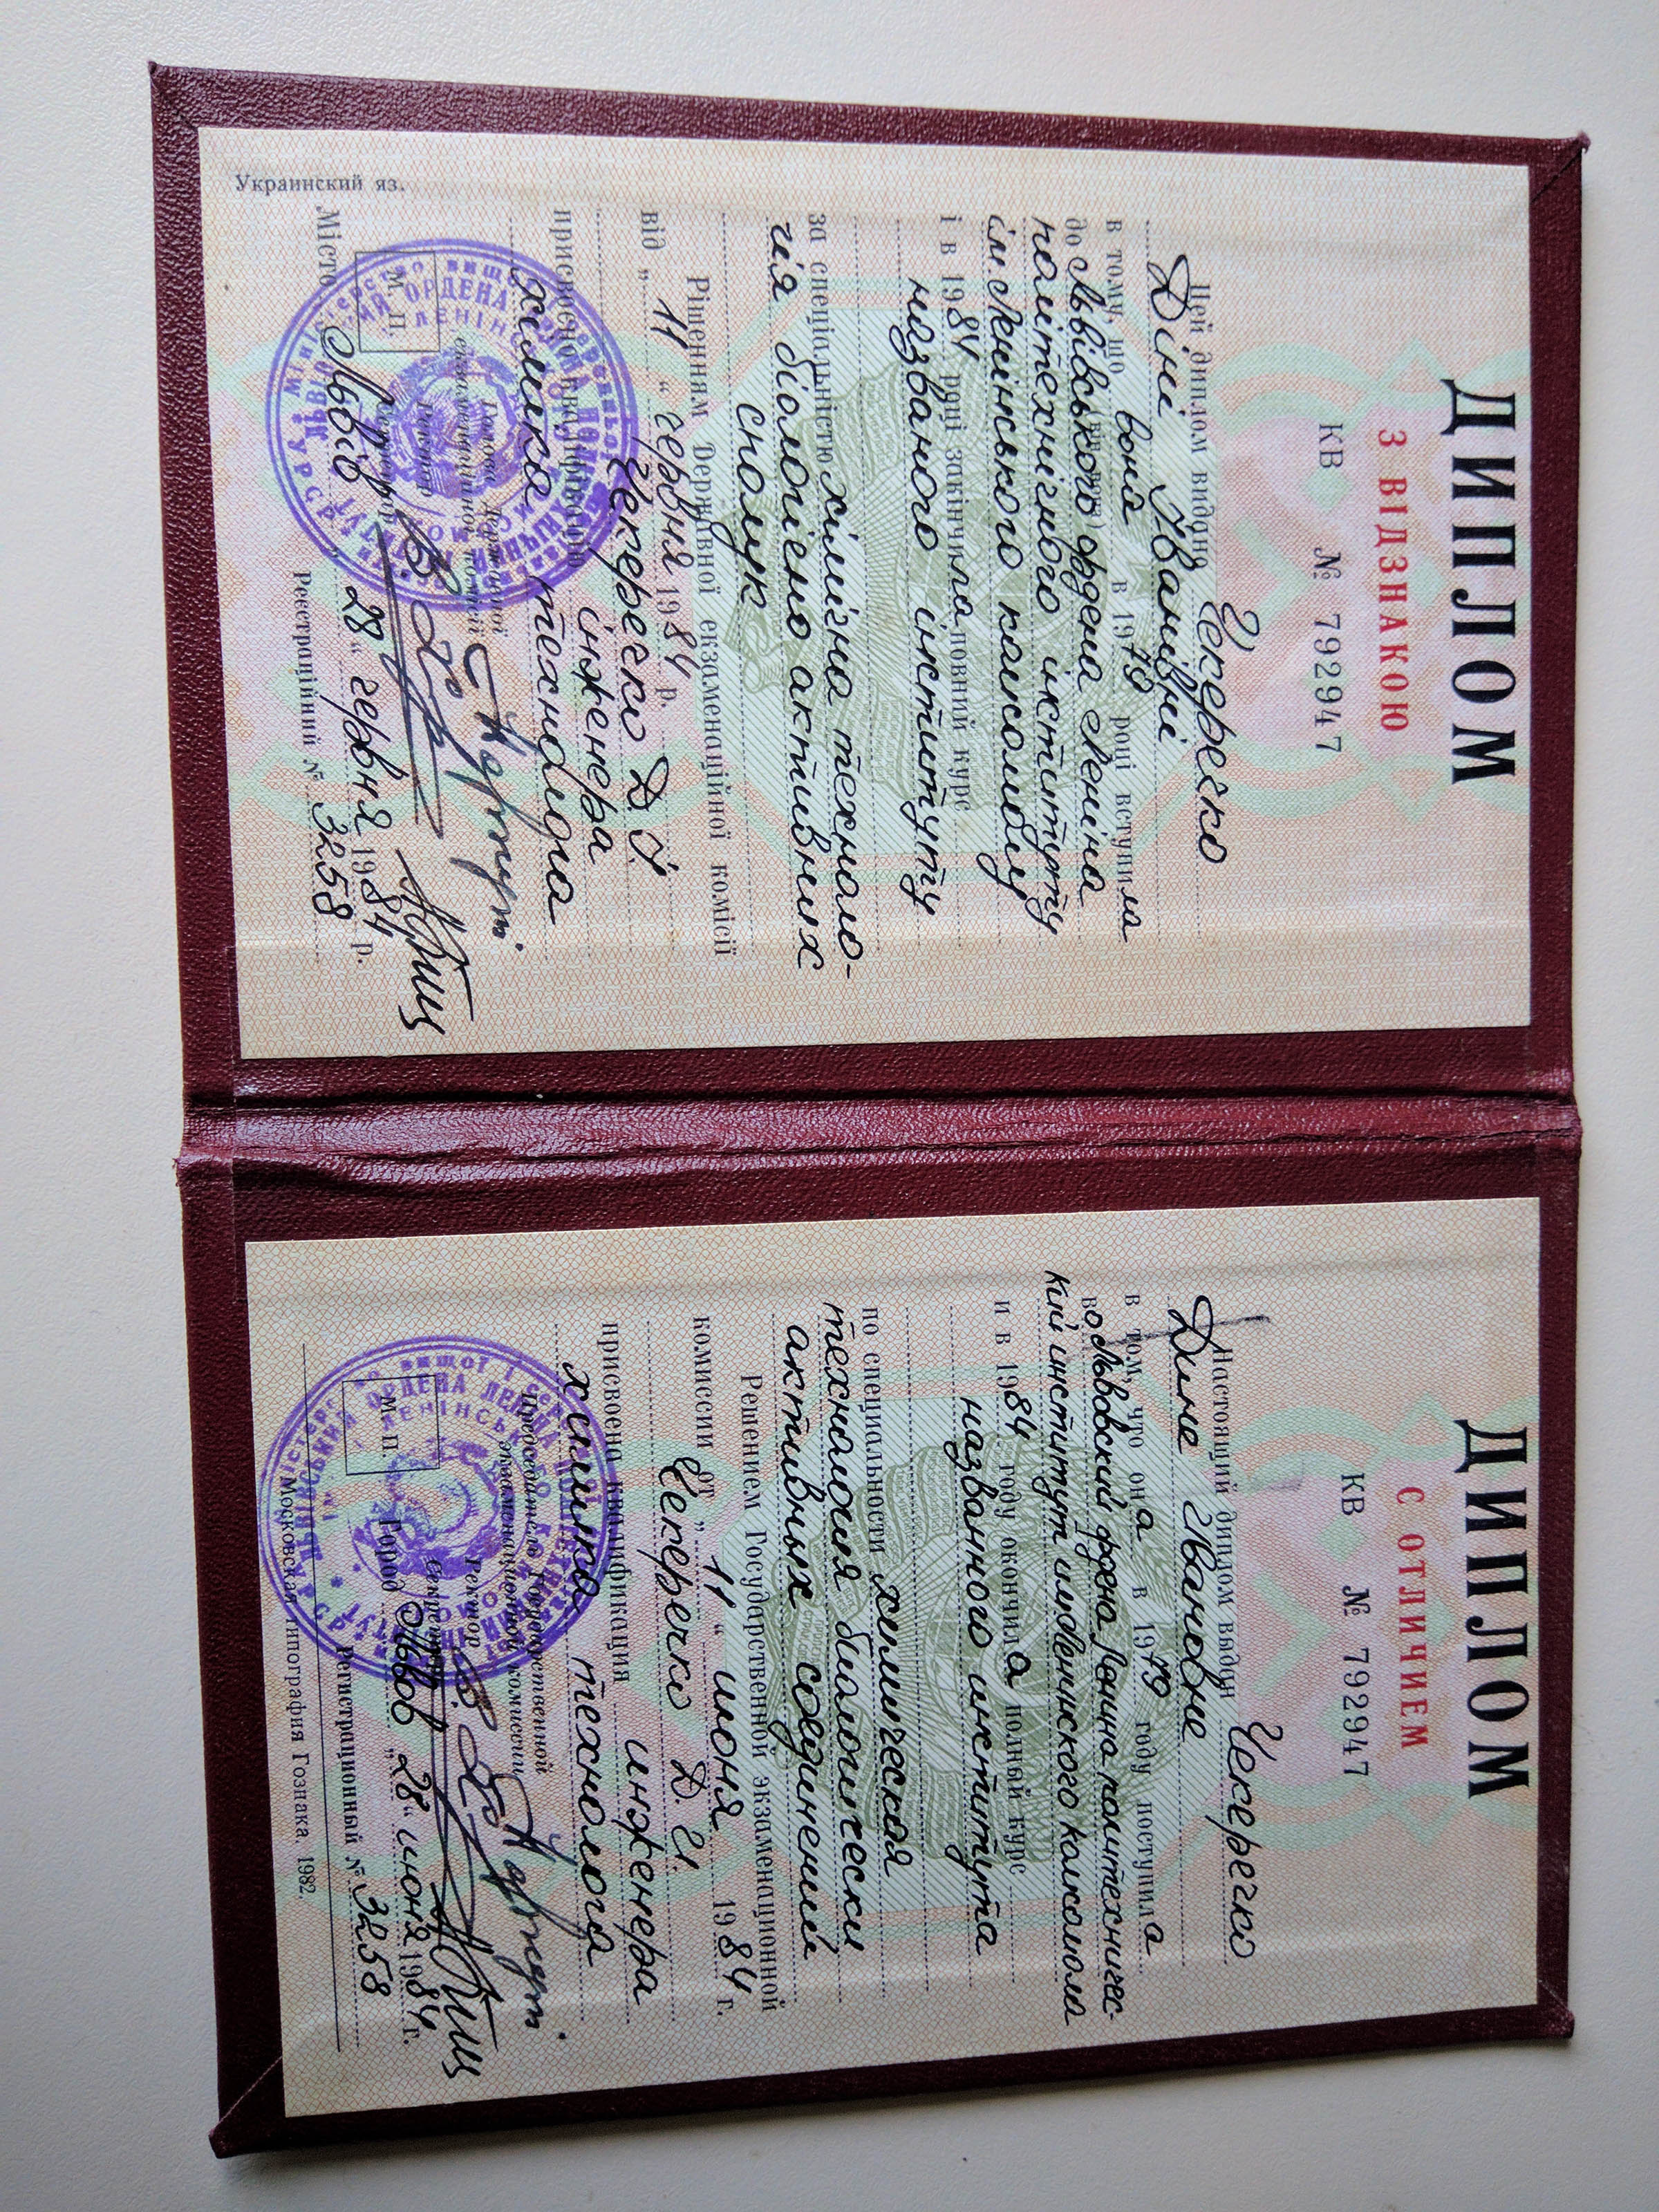 ДИПЛОМ
З ВІДЗНАКОЮ
КВ № 792947
Цей диплом видано Чекеречко
Діні Іванівні
в тому, що вона в 1979 році вступила
до Львівського ордена Леніна
політехнічного інституту
ім. Ленінського комсомолу
і в 1984 році закінчила повний курс
названого інституту
за спеціальністю хімічна техноло-
гія біологічно активних
сполук
Рішенням Державної екзаменаційної комісії
від „ 11 “ червня 1984 р.
Чекеречко Д. І.
присвоєно кваліфікацію інженера
хіміка технолога
Голова Державної
екзаменаційної комісії
Ректор
Секретар
М. П.
Місто Львів „ 28 “ червня 1984 р.
Реєстраційний № 3258
Украинский яз.
ДИПЛОМ
С ОТЛИЧИЕМ
КВ № 792947
Настоящий диплом выдан Чекеречко
Дине Ивановне
в том, что она в 1979 году поступила
во Львовский ордена Ленина политехничес-
кий институт им. Ленинского комсомола
и в 1984 году окончила полный курс
названного института
по специальности химическая
технология биологически
активных соединений
Решением Государственной экзаменационной
комиссии от „ 11 “ июня 1984 г.
Чекеречко Д. И.
присвоена квалификация инженера
химика технолога
Председатель Государственной
экзаменационной комиссии
Ректор
Секретарь
М. П.
Город Львов „ 28 “ июня 1984 г.
Регистрационный № 3258
Московская типография Гознака. 1982.